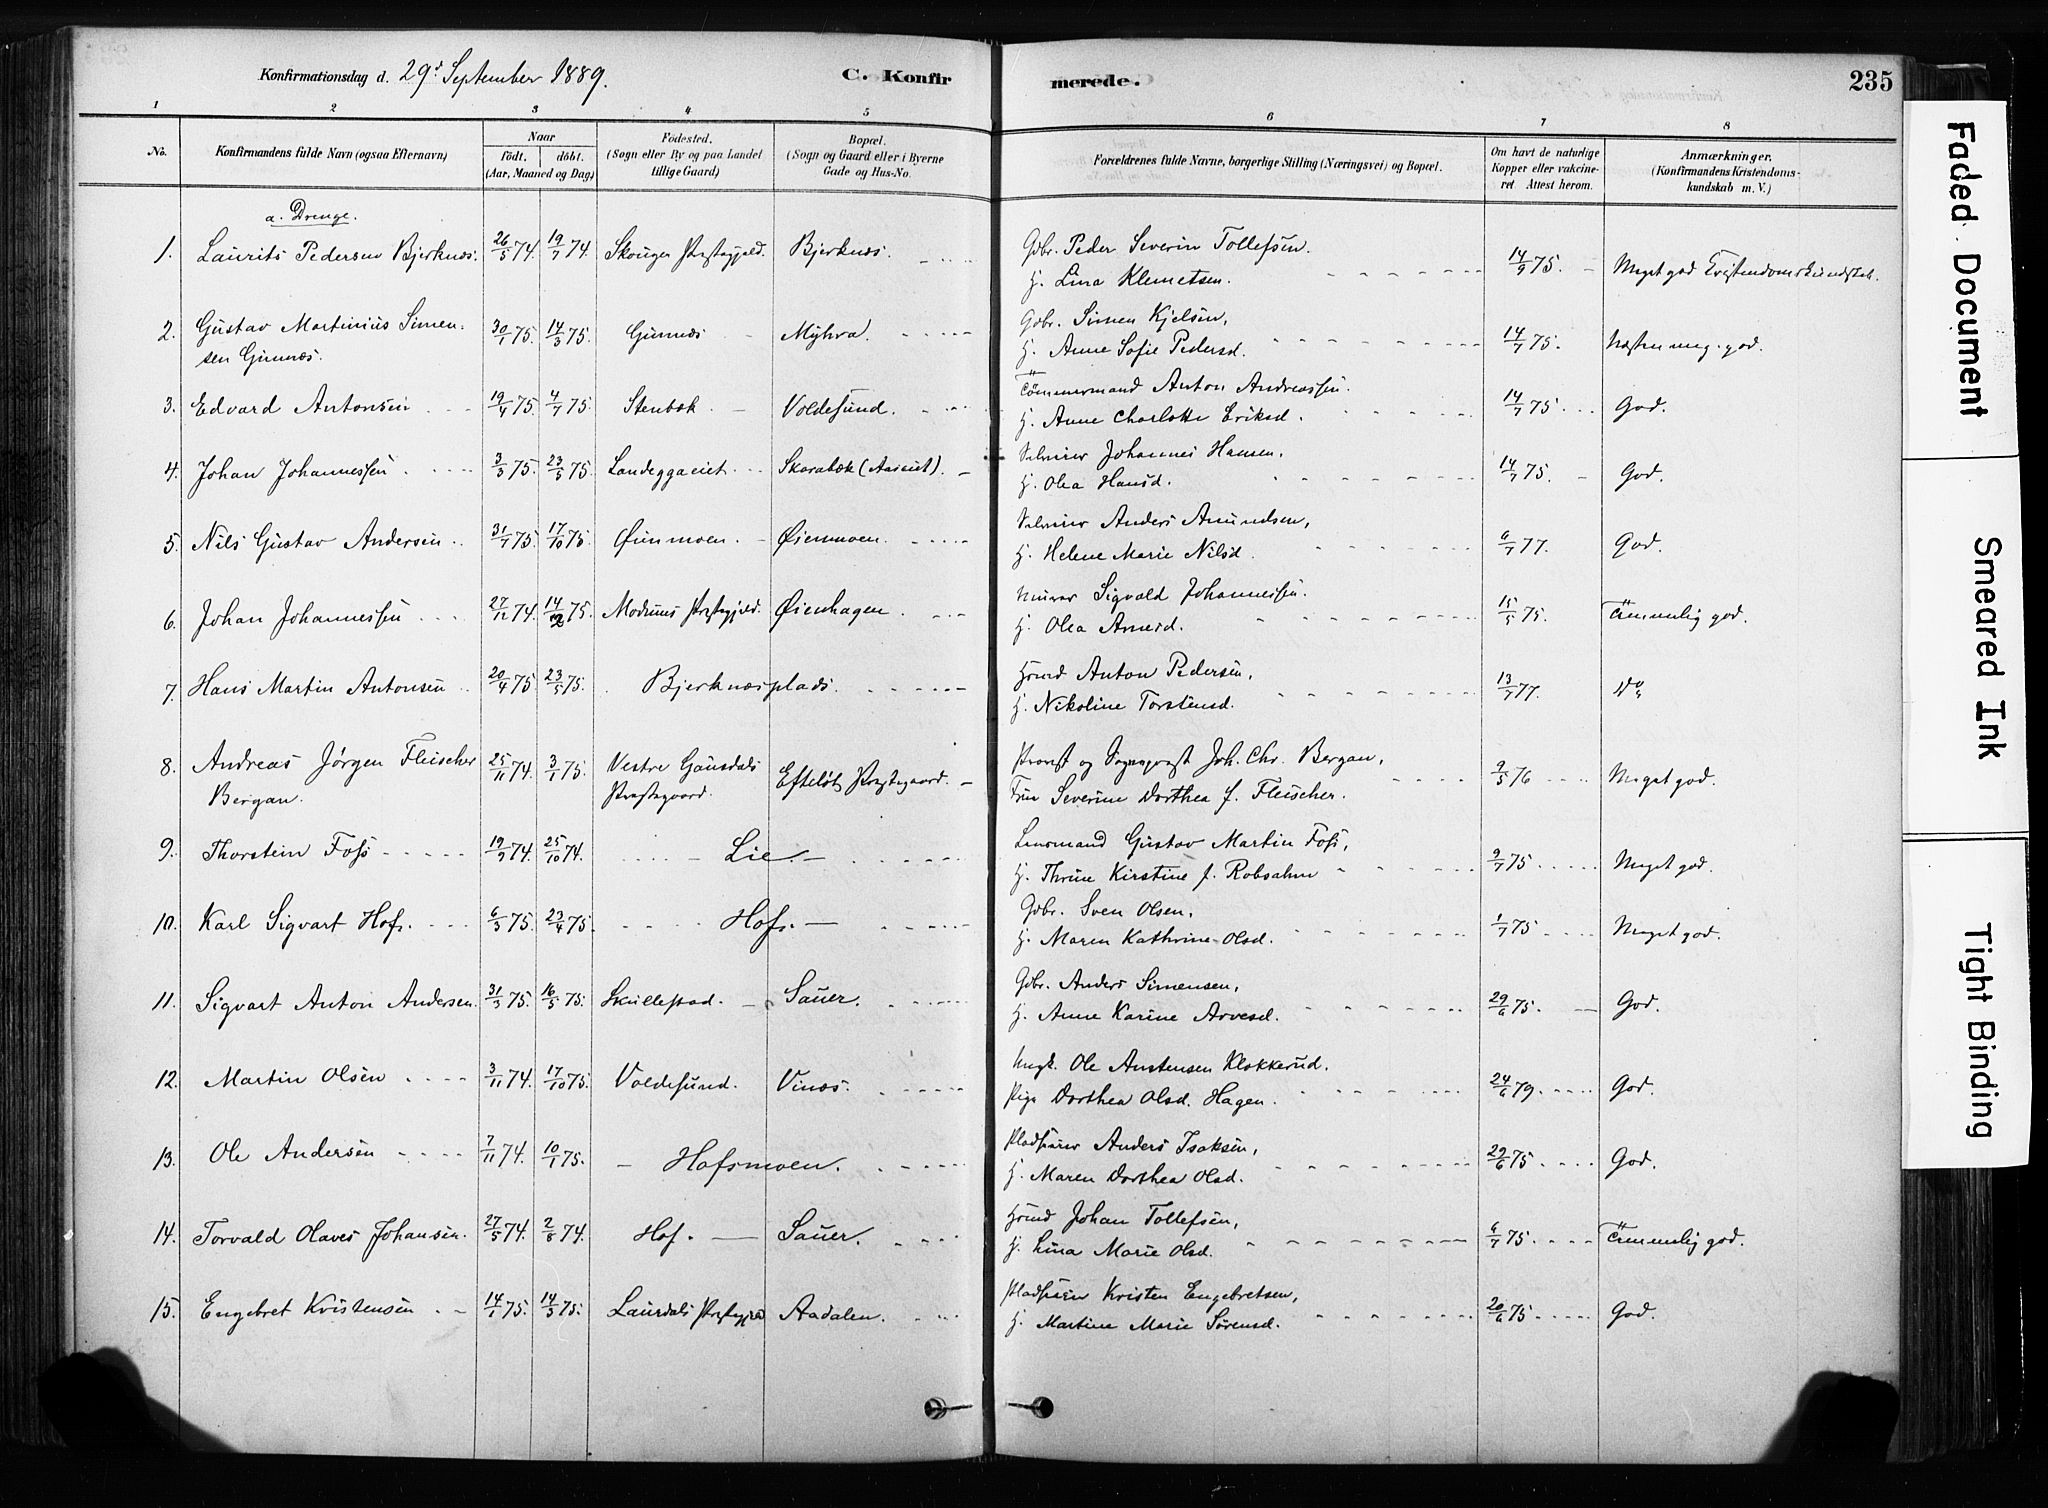 Konfirmationsdag d. 29d September 1889. C. Konfirmerede. 235
1 2 3 4 5 6 7 8
No. Konfirmandens fulde Navn (ogsaa Efternavn) Naar født. døbt. (Aar, Maaned og Dag) Födested. (Sogn eller By og paa Landet tillige Gaard) Bopæl. (Sogn og Gaard eller i Byerne Gade og Hus-No. Forældrenes fulde Navne, borgerlige Stilling (Næringsvei) og Bopæl. Om havt de naturlige Kopper eller vakcineret Attest herom. Anmærkninger. (Konfirmandens Kristendomskundskab m. V.)
a. Drenge.
1. Laurits Pedersen Bjerknes. 26/5 74. 19/7 74. Skouger Præstegjeld. Bjerknes. Gdbr. Peder Severin Tollefsen. 14/9 75. Meget god Kristendomskundskab.
H. Lina Klemetsen.
2. Gustav Martinius Simen- 30/1 75. 14/3 75. Gunnes Myhra. Gdbr. Simen Kjelsen, 14/7 75. Næsten meg. god.
sen Gunnes. H. Anne Sofie Pedersd.
3. Edvard Antonsen 19/4 75. 4/7 75. Stenbæk Voldesund. Tömmermand Anton Andreassen. 14/7 75. God.
H. Anne Charlotte Eriksd.
4. Johan Johannessen 3/3 75. 23/5 75. Skarabæk Johannes Hansen, 14/7 75. God.
H. Olea Hansd.
5. Nils Gustav Andersen 31/7 75. 17/10 75. Øienmoen. Anders Amundsen, 6/7 77. God.
H. Helene Marie Nilsd.
6. Johan Johannessen 27/12 74. 14/2 75. Modums Præstegjeld. Øienhagen. Murer Sigvald Johannessen. 15/5 75. Temmelig god.
H. Olea
7. Hans Martin Antonsen 20/4 75. 23/5 75. Bjerknesplads. Hsmd Anton Pedersen, 13/7 77. Do
H. Nikoline Torstensd.
8. Andreas Jørgen Fleischer 25/11 74. 3/1 75. Vestre Gausdals Efteløts Præstegaard. Provst og Sogneprest Joh. Chr. Bergan, 9/5 76 Meget god.
Bergan. Præstegaard. Frue Severine Dorthea f. Fleischer.
9. Thorstein Foss 19/9 74. 25/10 74. Lie Lensmand Gustav Martin Foss, 9/7 75 Meget god.
H. Thrine Kirstine f. Robsahm
10. Karl Sigvart Hofs. 6/3 75. 23/4 75. Hofs. Gdbr. Sven Olsen, 1/7 75 Meget god.
H. Maren Kathrine Olsd.
11. Sigvart Anton Andersen. 31/3 75. 16/5 75. Skullestad Sauer. Gdbr. Anders Simensen, 29/6 75. God.
H. Anne Karine Arvesd.
12. Martin Olsen 3/11 74. 17/10 75. Voldesund. Vines. Ungk. Ole Austensen Klokkerud. 24/6 79. God.
Pige Dorthea Olsd. Hagen.
13. Ole Andersen 7/11 74. 10/1 75. Hofsmoen. Anders Isaksen, 29/6 75 God.
H. Maren Dorthea Olsd.
14. Torvald Olaves Johansen. 27/5 74. 2/8 74. Hof. Sauer. Hsmd Johan Tollefsen, 6/7 75 Temmelig god.
H. Lina Marie Olsd.
15. Engebret Kristensen 14/1 75. 14/3 75. Laurdals Præstegjeld Aadalen. Kristen Engebretsen, 20/6 75 God.
H. Martine Marie Sørensd.
Faded Document
Smeared Ink
Tight Binding